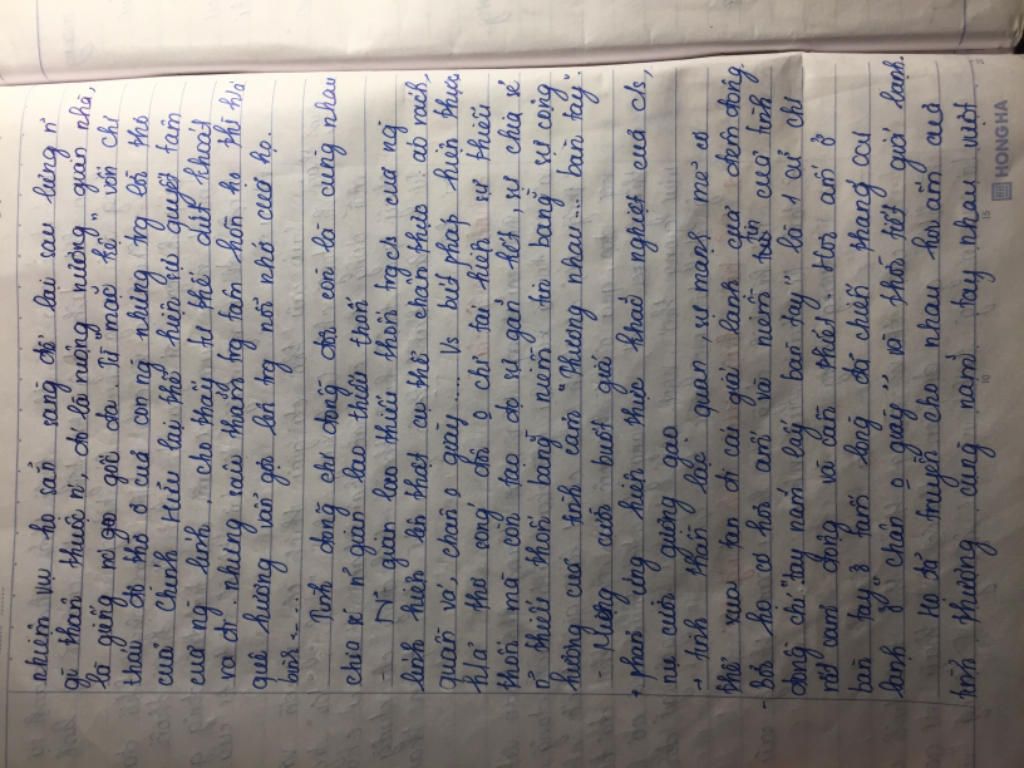 nhiệm vụ họ sẵn sàng để lại sau lưng n~
gì thân thuộc n', đó là ruộng nương, gian nhà,
là giếng nc gốc đa. Từ "mặc kệ" vốn chỉ
thái độ thờ ơ của con ng nhưng trg lời thơ
của Chính Hữu lại thể hiện sự quyết tâm
của ng lính, cho thấy tư thế dứt khoát
ra đi nhưng sâu thẳm trg tâm hồn họ thì h/á
quê hương vẫn gợi lên trg nỗi nhớ của họ.
Tình đồng chí đồng đội còn là cùng nhau
chia sẻ n~ gian lao thiếu thốn
- N~ gian lao thiếu thốn trg cs của ng
lính hiện lên thật cụ thể chân thực áo rách,
quần vá, chân o giày.... Vs bút pháp hiện thực
h/ả thơ sóng đôi o chỉ tái hiện sự thiếu
thốn mà còn tạo độ sự gắn kết, sự chia sẻ
n~ thiếu thốn bằng niềm tin bằng sự cộng
hưởng của tình cảm "Thương nhau.... bàn tay".
- Miệng cười buốt giá
+ phản ứng hiện thực khắc nghiệt của c/s,
nụ cười gượng gạo
→ tinh thần lạc quan, sự mạnh mẽ có
thể xua tan đi cái giá lạnh của đêm đông.
- Bởi họ có hơi ấm và niềm tin của tình
đồng chí "tay nắm lấy bàn tay" là 1 cử chỉ
rất cảm động và cần thiết. Hơi ấm ở
bàn tay ở tấm lòng đã chiến thắng cái
lạnh ở "chân o giày" và thời tiết giá lạnh.
Họ đã truyền cho nhau hơi ấm của
tình thương cùng nắm tay nhau vượt
HONG HA